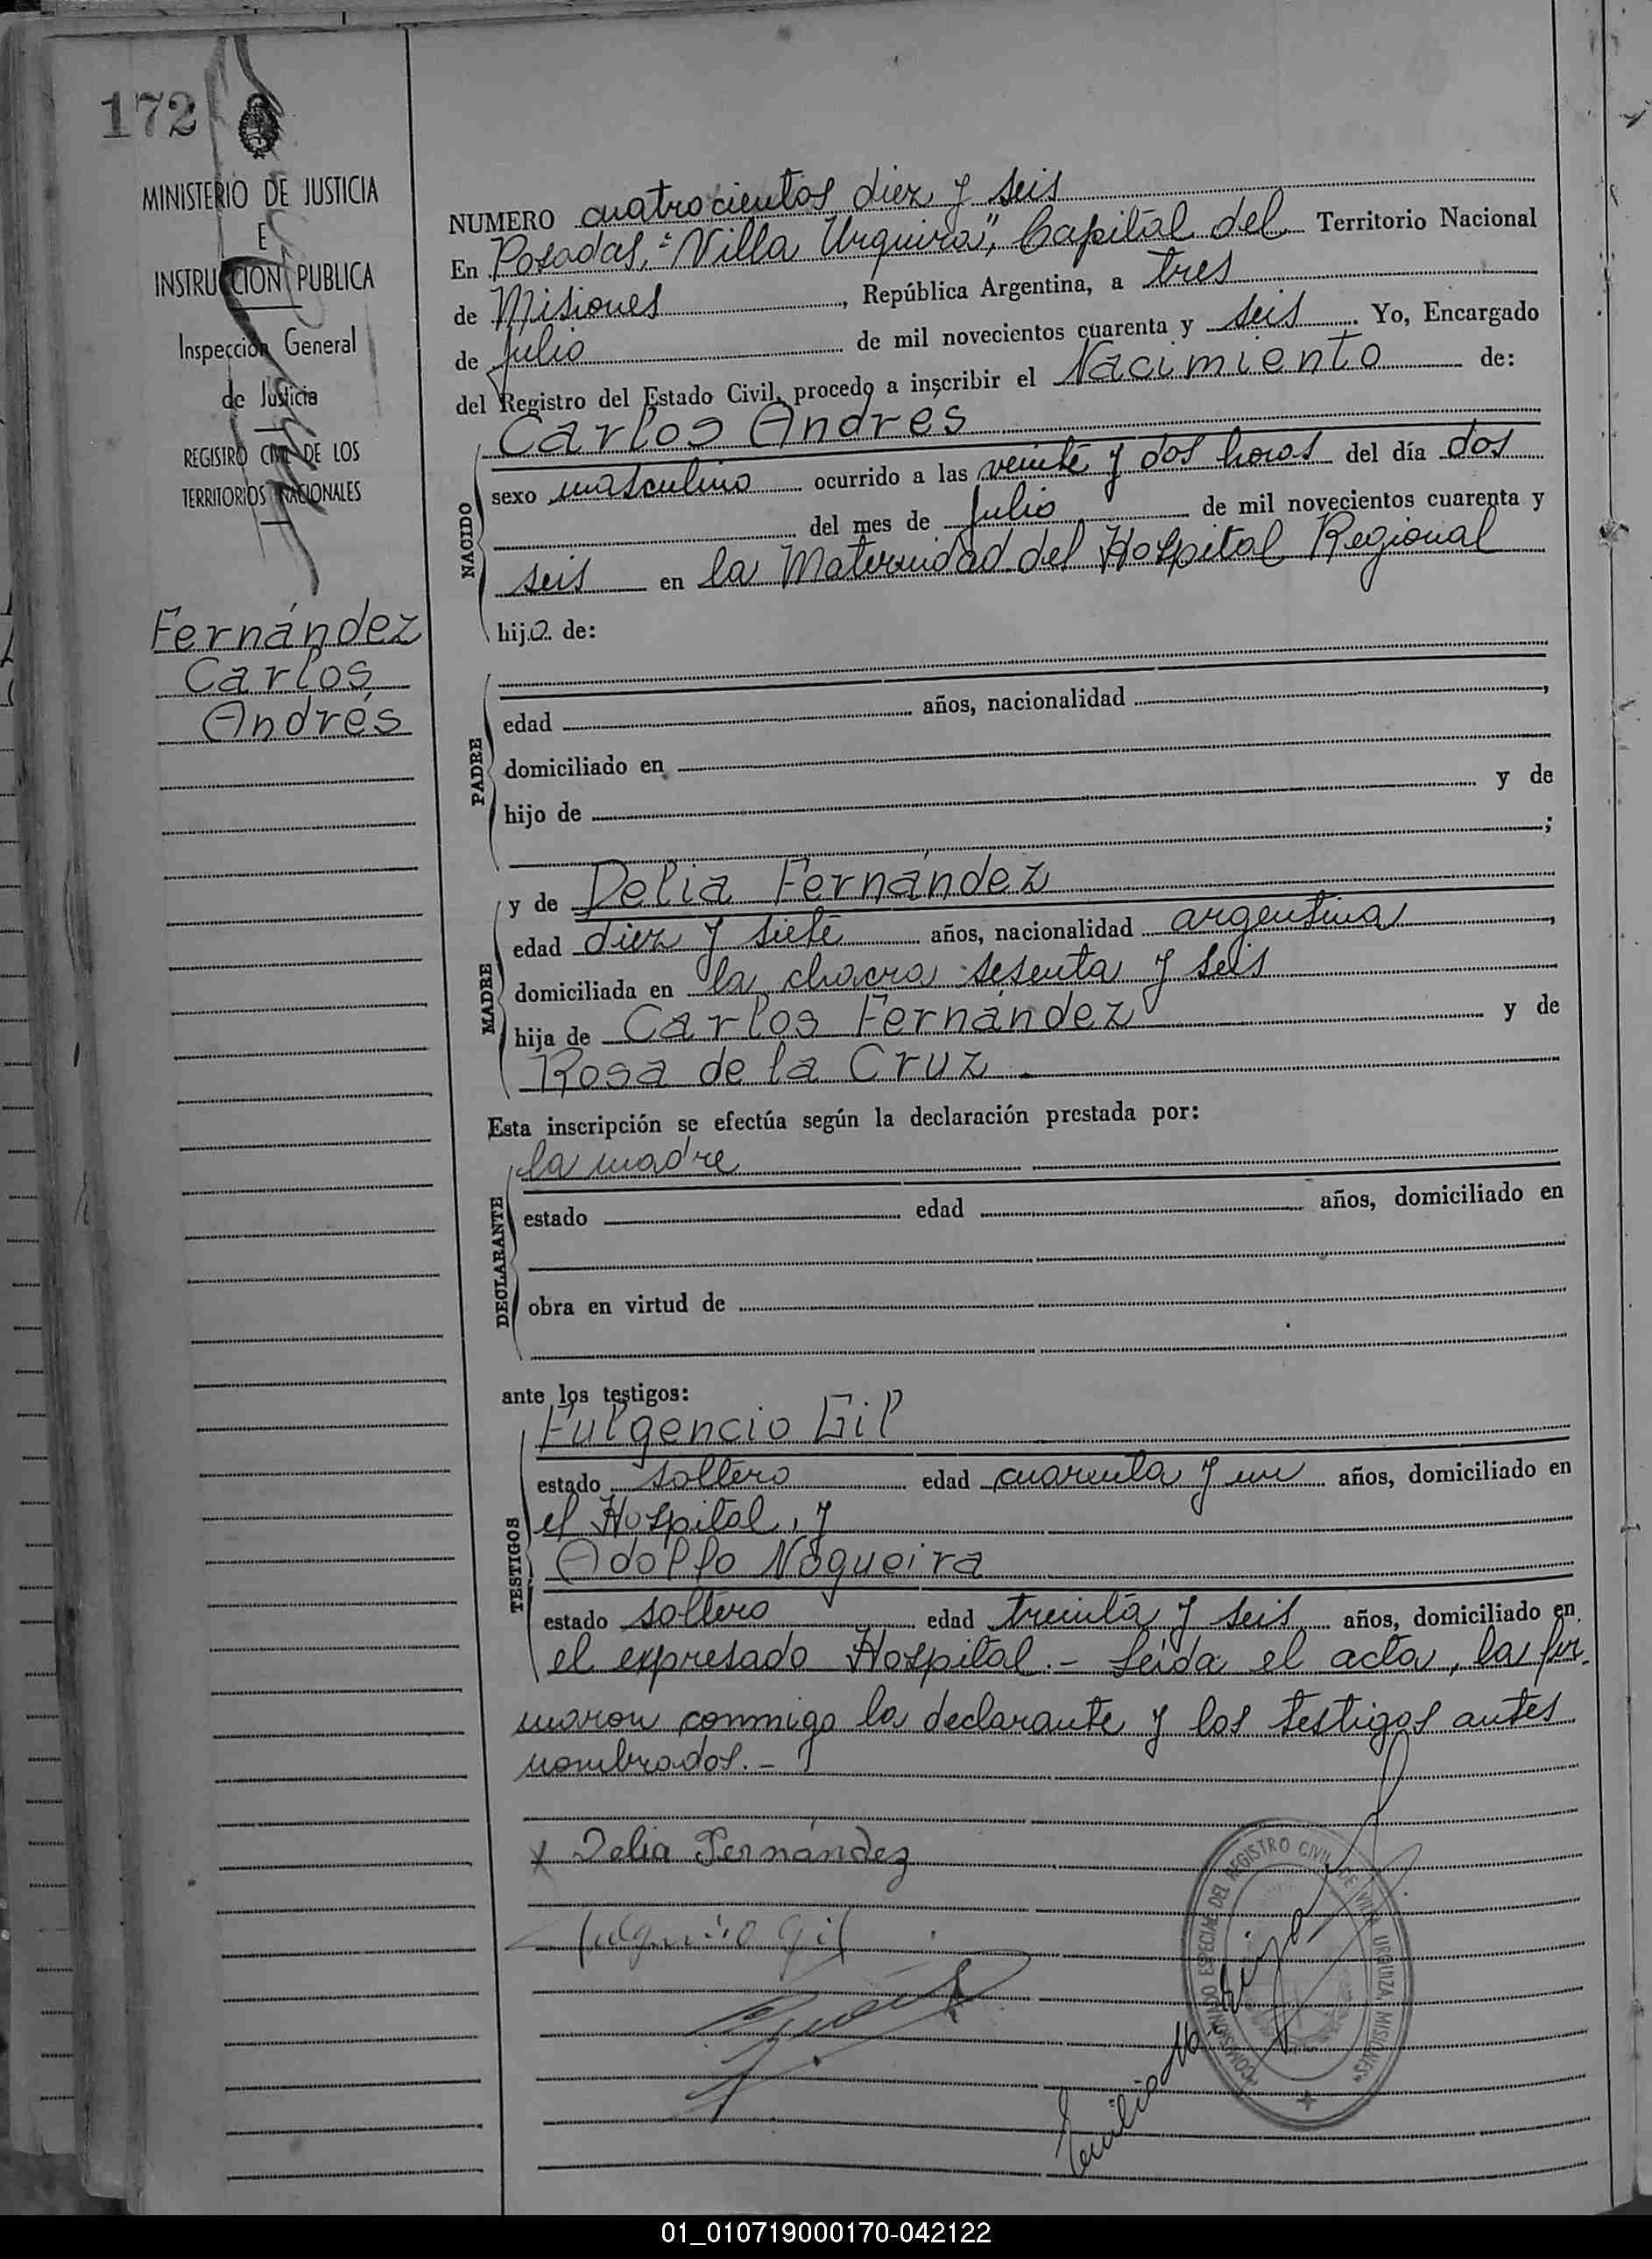 172
MINISTERIO DE JUSTICIA
E
INSTRUCCION PUBLICA
Inspección General
de Justicia
REGISTRO CIVIL DE LOS
TERRITORIOS NACIONALES
Fernández
Carlos
Andrés
NUMERO cuatrocientos diez y seis
En Posadas, "Villa Urquiza", Capital del Territorio Nacional
de Misiones, República Argentina, a tres
de julio de mil novecientos cuarenta y seis. Yo, Encargado
del Registro del Estado Civil, procedo a inscribir el Nacimiento de:
NACIDO
Carlos Andrés
sexo masculino ocurrido a las veinte y dos horas del día dos
del mes de julio de mil novecientos cuarenta y
seis en la Maternidad del Hospital Regional
hijo de:
PADRE
edad años, nacionalidad ,
domiciliado en
hijo de y de
;
MADRE
y de Delia Fernández
edad diez y siete años, nacionalidad argentina,
domiciliada en la chacra sesenta y seis
hija de Carlos Fernández y de
Rosa de la Cruz.
Esta inscripción se efectúa según la declaración prestada por:
DECLARANTE
la madre
estado edad años, domiciliado en
obra en virtud de
ante los testigos:
TESTIGOS
Fulgencio Gil
estado soltero edad cuarenta y un años, domiciliado en
el Hospital, y
Adolfo Nogueira
estado soltero edad treinta y seis años, domiciliado en
el expresado Hospital.- Leída el acta, la fir-
maron conmigo la declarante y los testigos antes
nombrados.-
x Delia Fernández
Fulgencio Gil
Emilio M.
COMISIONADO ESPECIAL DEL REGISTRO CIVIL DE VILLA URQUIZA, MISIONES
01_010719000170-042122